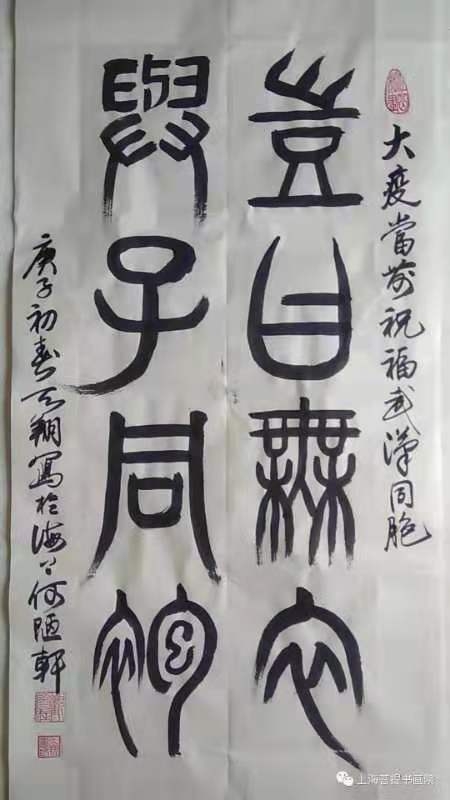 大疫當前祝福武漢同胞
豈曰無衣
與子同袍
庚子初春天翔寫於海上何陋軒
上海菩提书画院